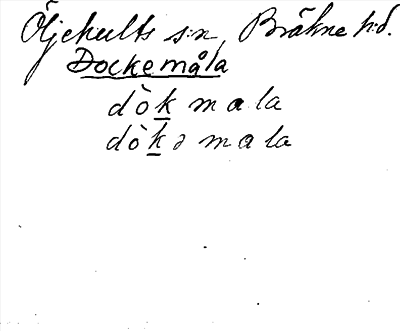 Öljehults s:n, Bräkne h:d.
Dockemåla
dò̀k mala
dòkə mala